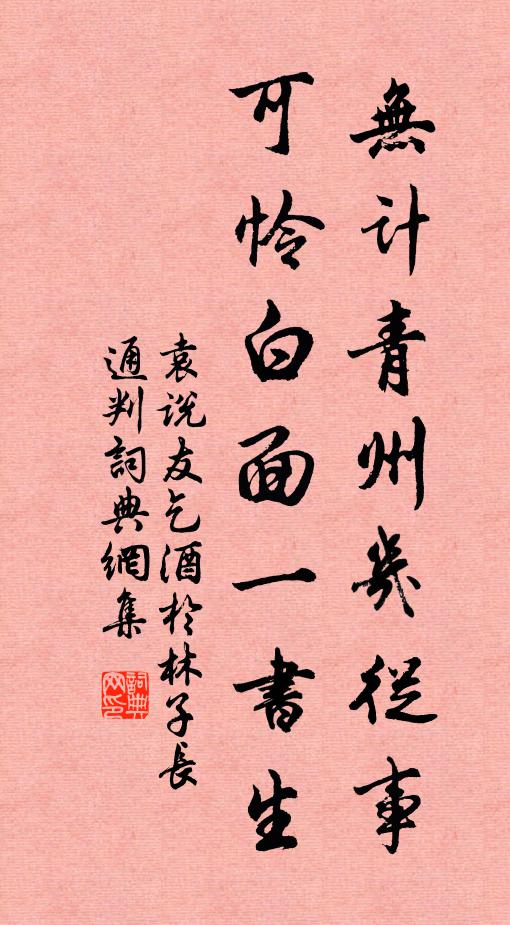 無計青州幾從事
可怜白面一書生
袁说友乞酒於林子長
通判詞典網集
詞典
网印